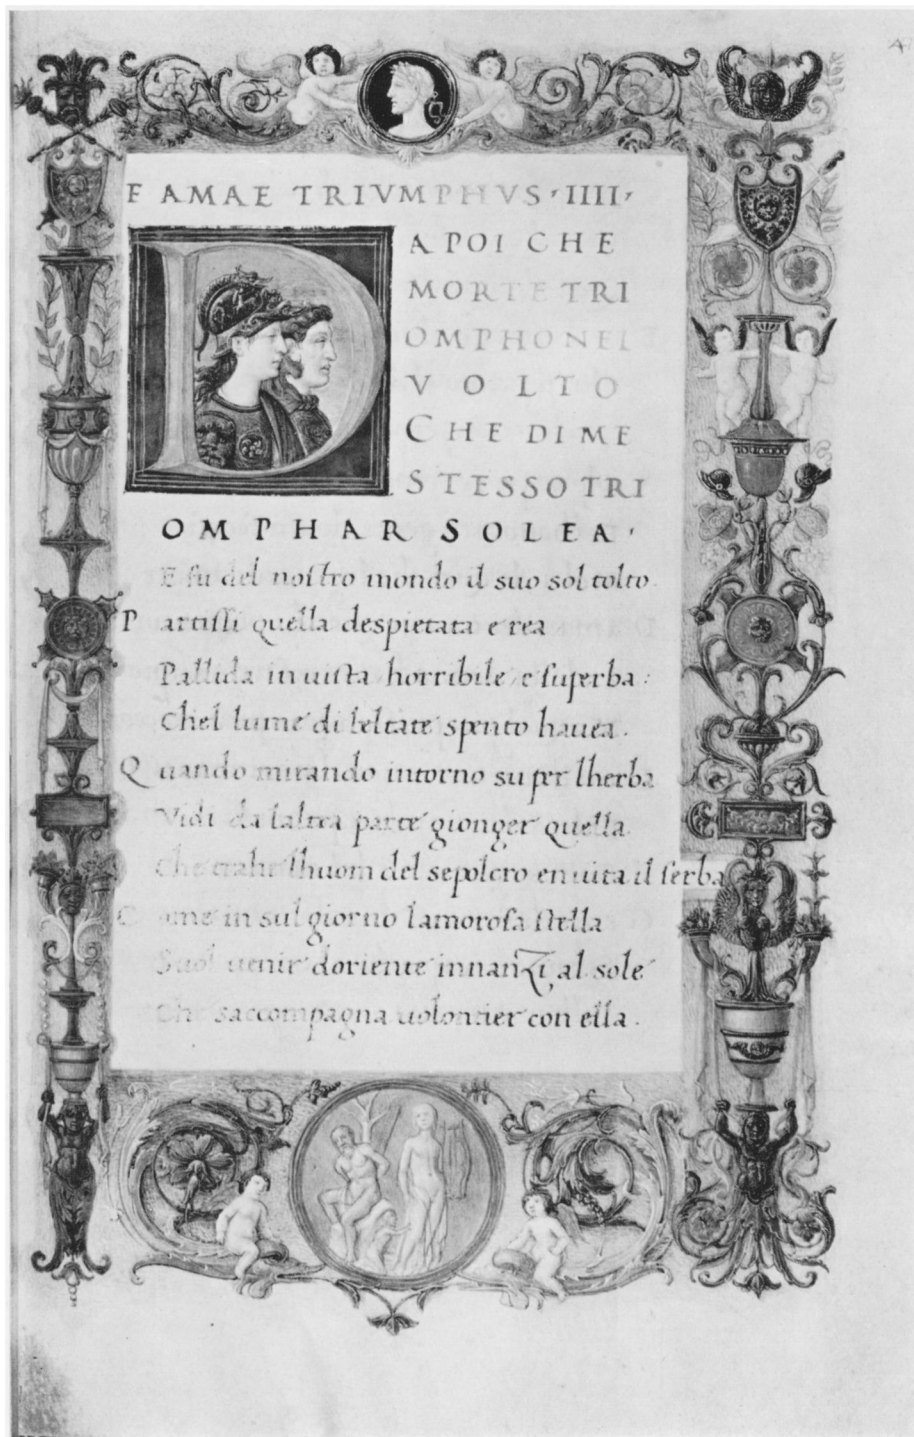 FAMAE TRIVMPHVS·IIII·
DAPOI CHE
MORTE TRI
OMPHO NEL
VOLTO
CHE DI ME
STESSO TRI
OMPHAR SOLEA·
E fu del nostro mondo il suo sol tolto.
Partissi quella despietata e rea
Pallida in uista horribile e superba:
Chel lume di beltate spento hauea.
Quando mirando intorno su per lherba
Vidi da laltra parte gionger quella
Che trahe lhuom del sepolcro en uita il serba
Come in sul giorno lamorosa stella
Suol uenir doriente innanzi al sole
Che saccompagna uolontier con ella.